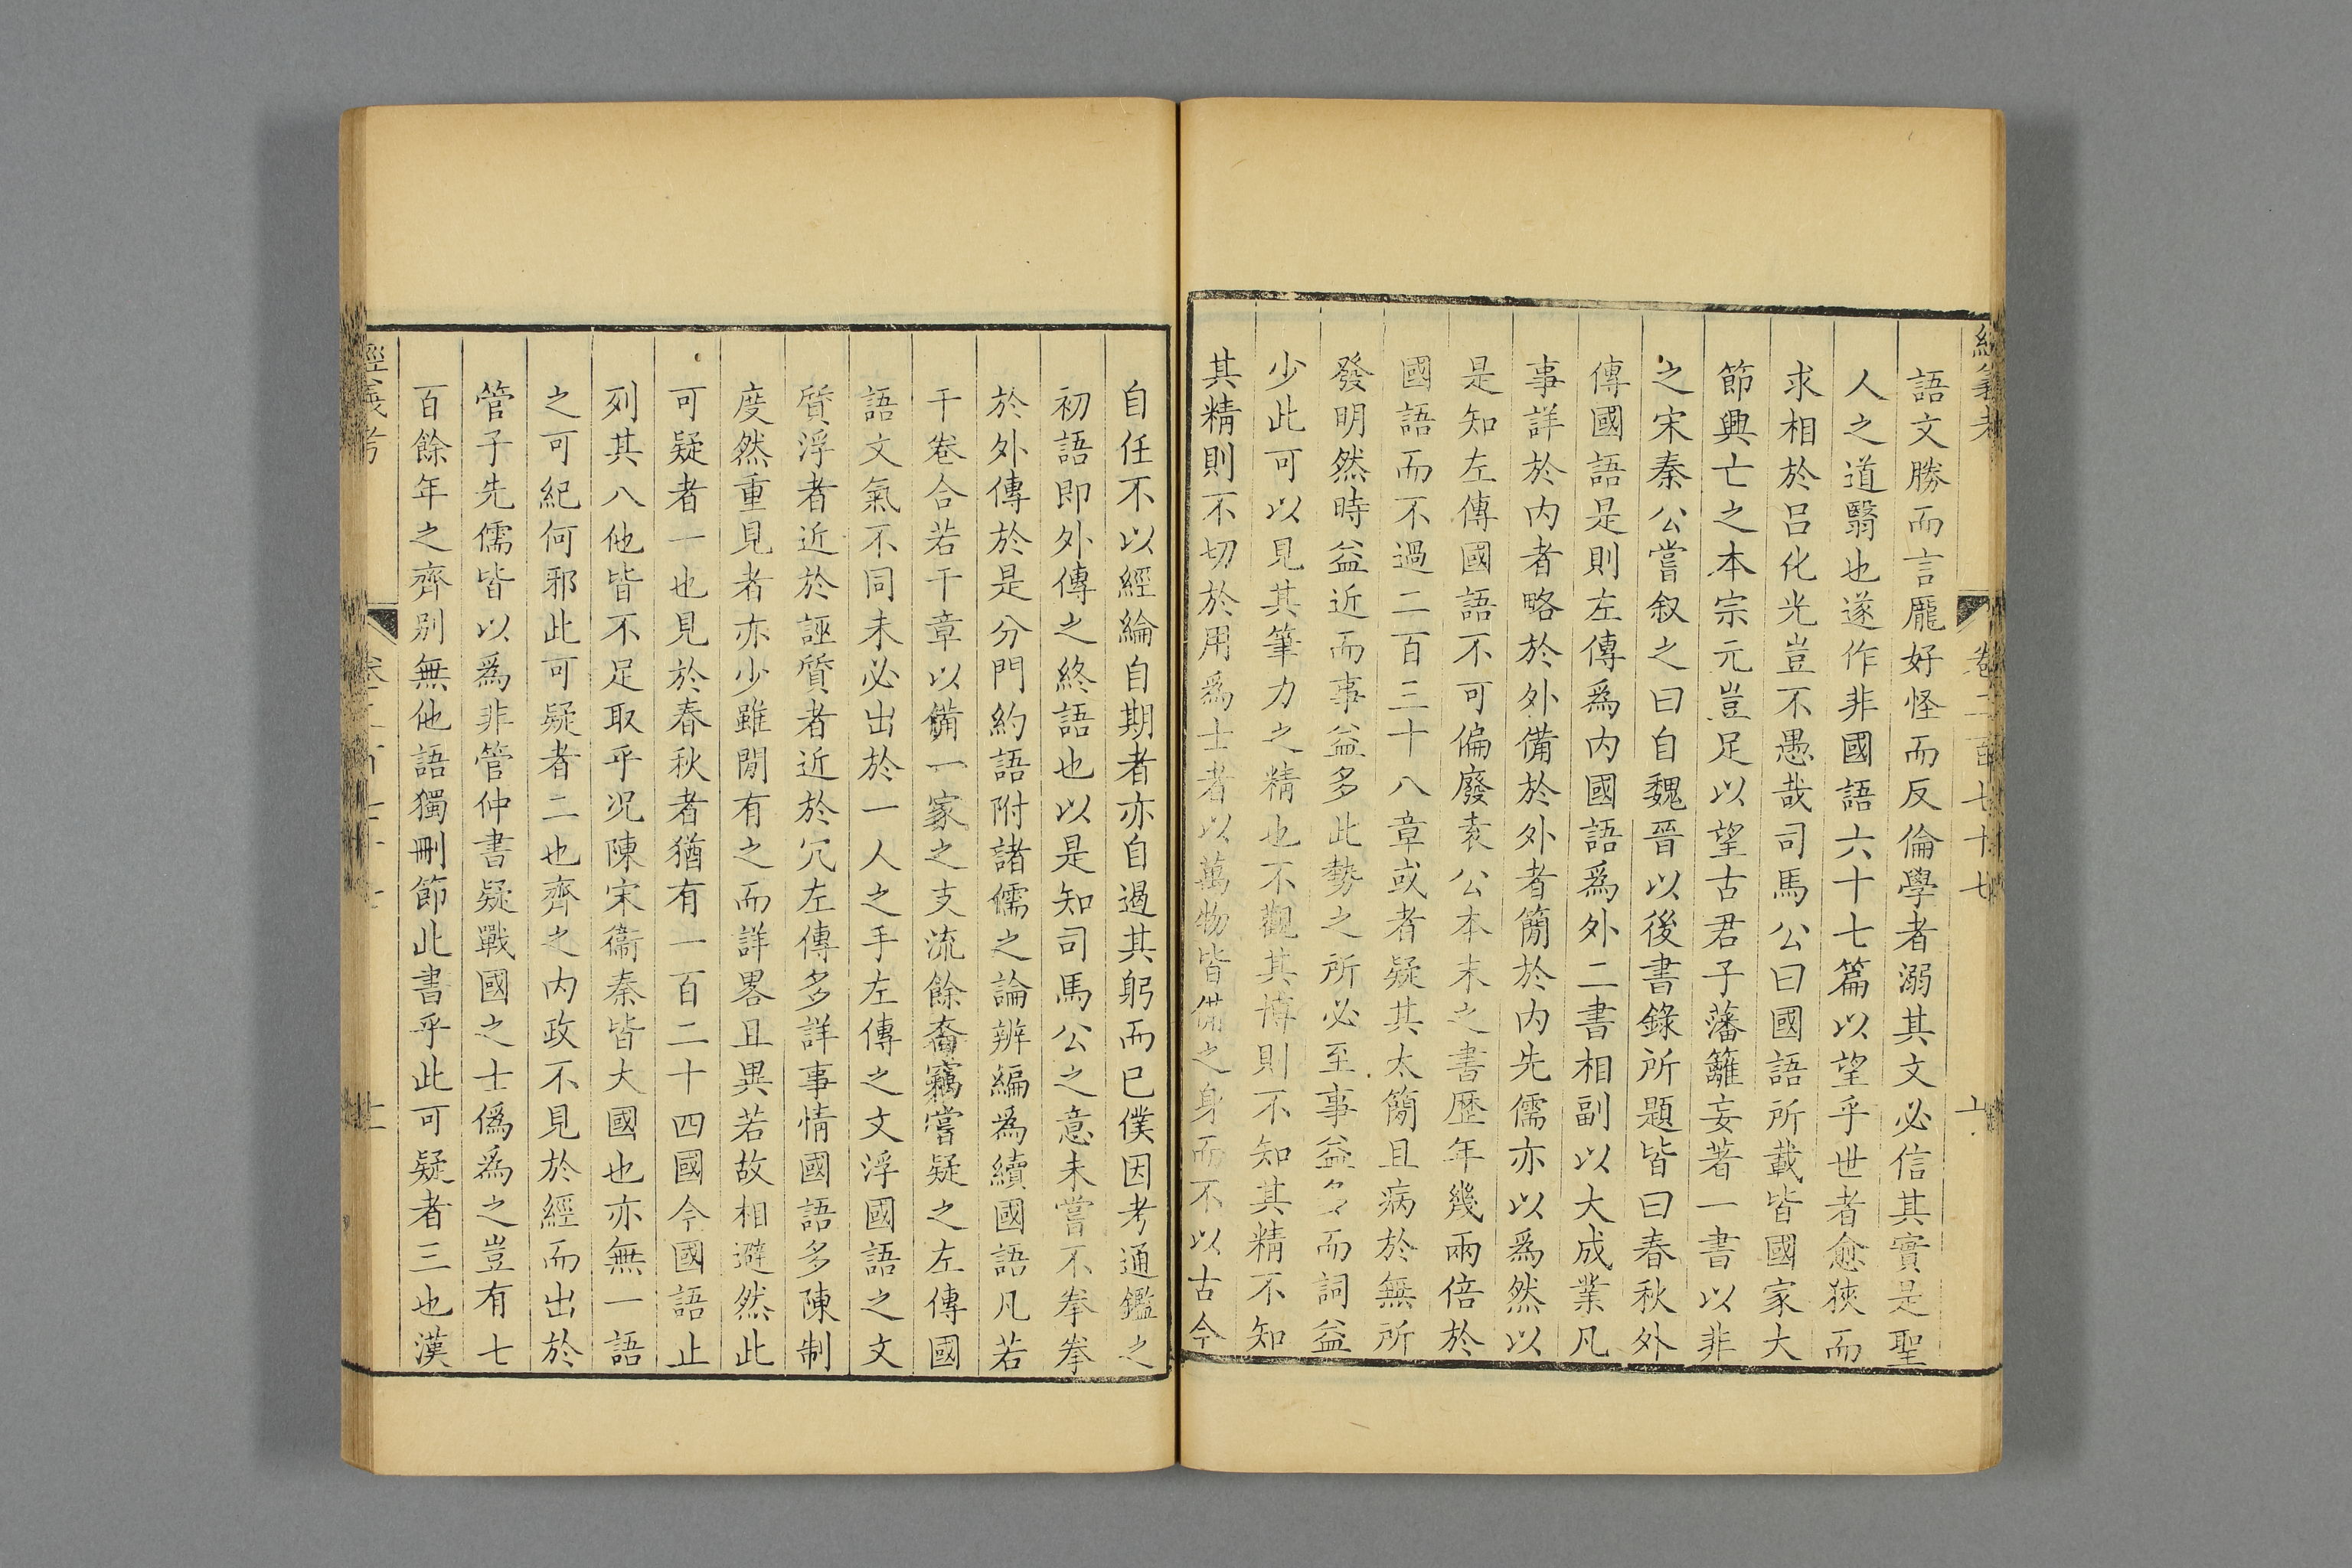 語文勝而言厖好怪而反倫學者溺其文必信其實是聖
人之道翳也遂作非國語六十七篇以望乎世者愈狹而
求相於呂化光豈不愚哉司馬公曰國語所載皆國家大
節興亡之本宗元豈足以望古君子藩籬妄著一書以非
之宋秦公嘗叙之曰自魏晉以後書錄所題皆曰春秋外
傳國語是則左傳爲內國語爲外二書相副以大成業凡
事詳於內者略於外備於外者簡於內先儒亦以爲然以
是知左傳國語不可偏廢袤公本末之書歴年幾兩倍於
國語而不過二百三十八章或者疑其太簡且病於無所
發明然時益近而事益多此勢之所必至事益多而詞益
少此可以見其筆力之精也不觀其博則不知其精不知
其精則不切於用爲士者以萬物皆備之身而不以古今
自任不以經綸自期者亦自過其躬而已僕因考通鑑之
初語即外傳之終語也以是知司馬公之意未嘗不拳拳
於外傳於是分門約語附諸儒之論辨編爲續國語凡若
干卷合若干章以備一家之支流餘裔竊嘗疑之左傳國
語文氣不同未必出於一人之手左傳之文浮國語之文
質浮者近於誣質者近於冗左傳多詳事情國語多陳制
度然重見者亦少雖閒有之而詳畧且異若故相避然此
可疑者一也見於春秋者猶有一百二十四國今國語止
列其八他皆不足取乎况陳宋衞秦皆大國也亦無一語
之可紀何邪此可疑者二也齊之內政不見於經而出於
管子先儒皆以爲非管仲書疑戰國之士僞爲之豈有七
百餘年之齊別無他語獨刪節此書乎此可疑者三也漢